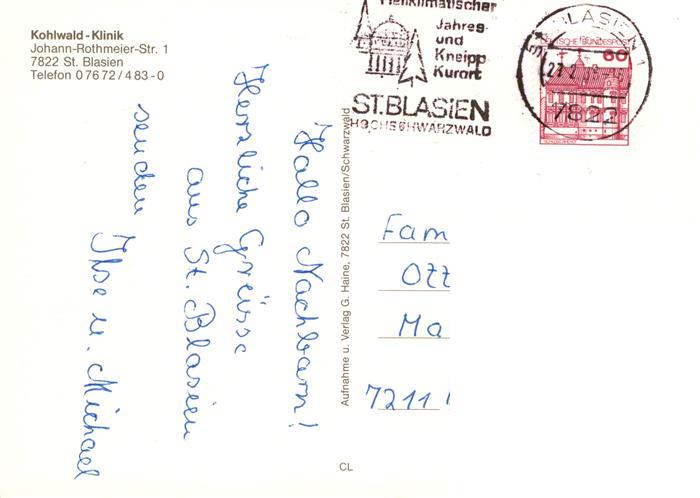 Kohlwald-Klinik
Johann-Rothmeier-Str. 1
7822 St. Blasien
Telefon 0 76 72 / 4 83 - 0
Hallo Nachbarn!
Herzliche Grüsse
aus St. Blasien
senden
Ilse u. Michael
Aufnahme u. Verlag G. Haine, 7822 St. Blasien/Schwarzwald
CL
Heilklimatischer
Jahres-
und
Kneipp
Kurort
ST. BLASIEN
HOCHSCHWARZWALD
ST. BLASIEN 1
7822
DEUTSCHE BUNDESPOST
60
Fam
Ott
Ma
7211